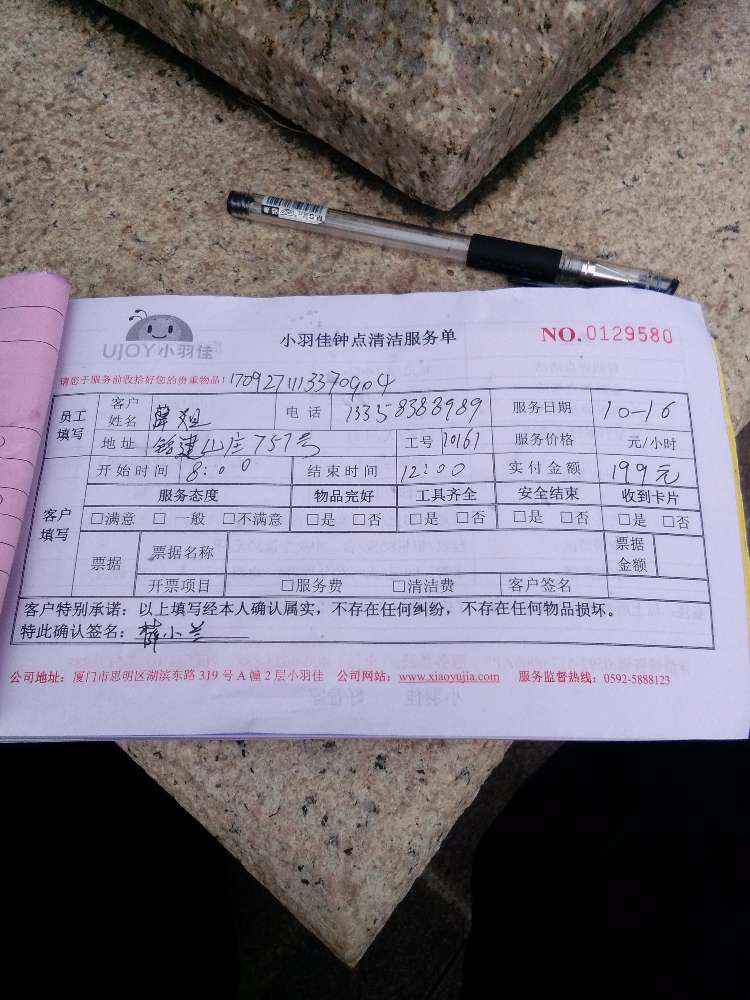 UJOY小羽佳
小羽佳钟点清洁服务单
NO.0129580
请您于服务前收拾好您的贵重物品!
1709271113370904
员工填写 客户姓名 薛姐 电话 13358388989 服务日期 10-16
地址 751号 工号 10161 服务价格 元/小时
开始时间 8:00 结束时间 12:00 实付金额 199元
客户填写 服务态度 物品完好 工具齐全 安全结束 收到卡片
□满意 □一般 □不满意 □是 □否 □是 □否 □是 □否 □是 □否
票据 票据名称 票据金额
开票项目 □服务费 □清洁费 客户签名
客户特别承诺:以上填写经本人确认属实,不存在任何纠纷,不存在任何物品损坏。
特此确认签名:薛小兰
公司地址:厦门市思明区湖滨东路 319 号 A 幢 2 层小羽佳 公司网站:www.xiaoyujia.com 服务监督热线:0592-5888123